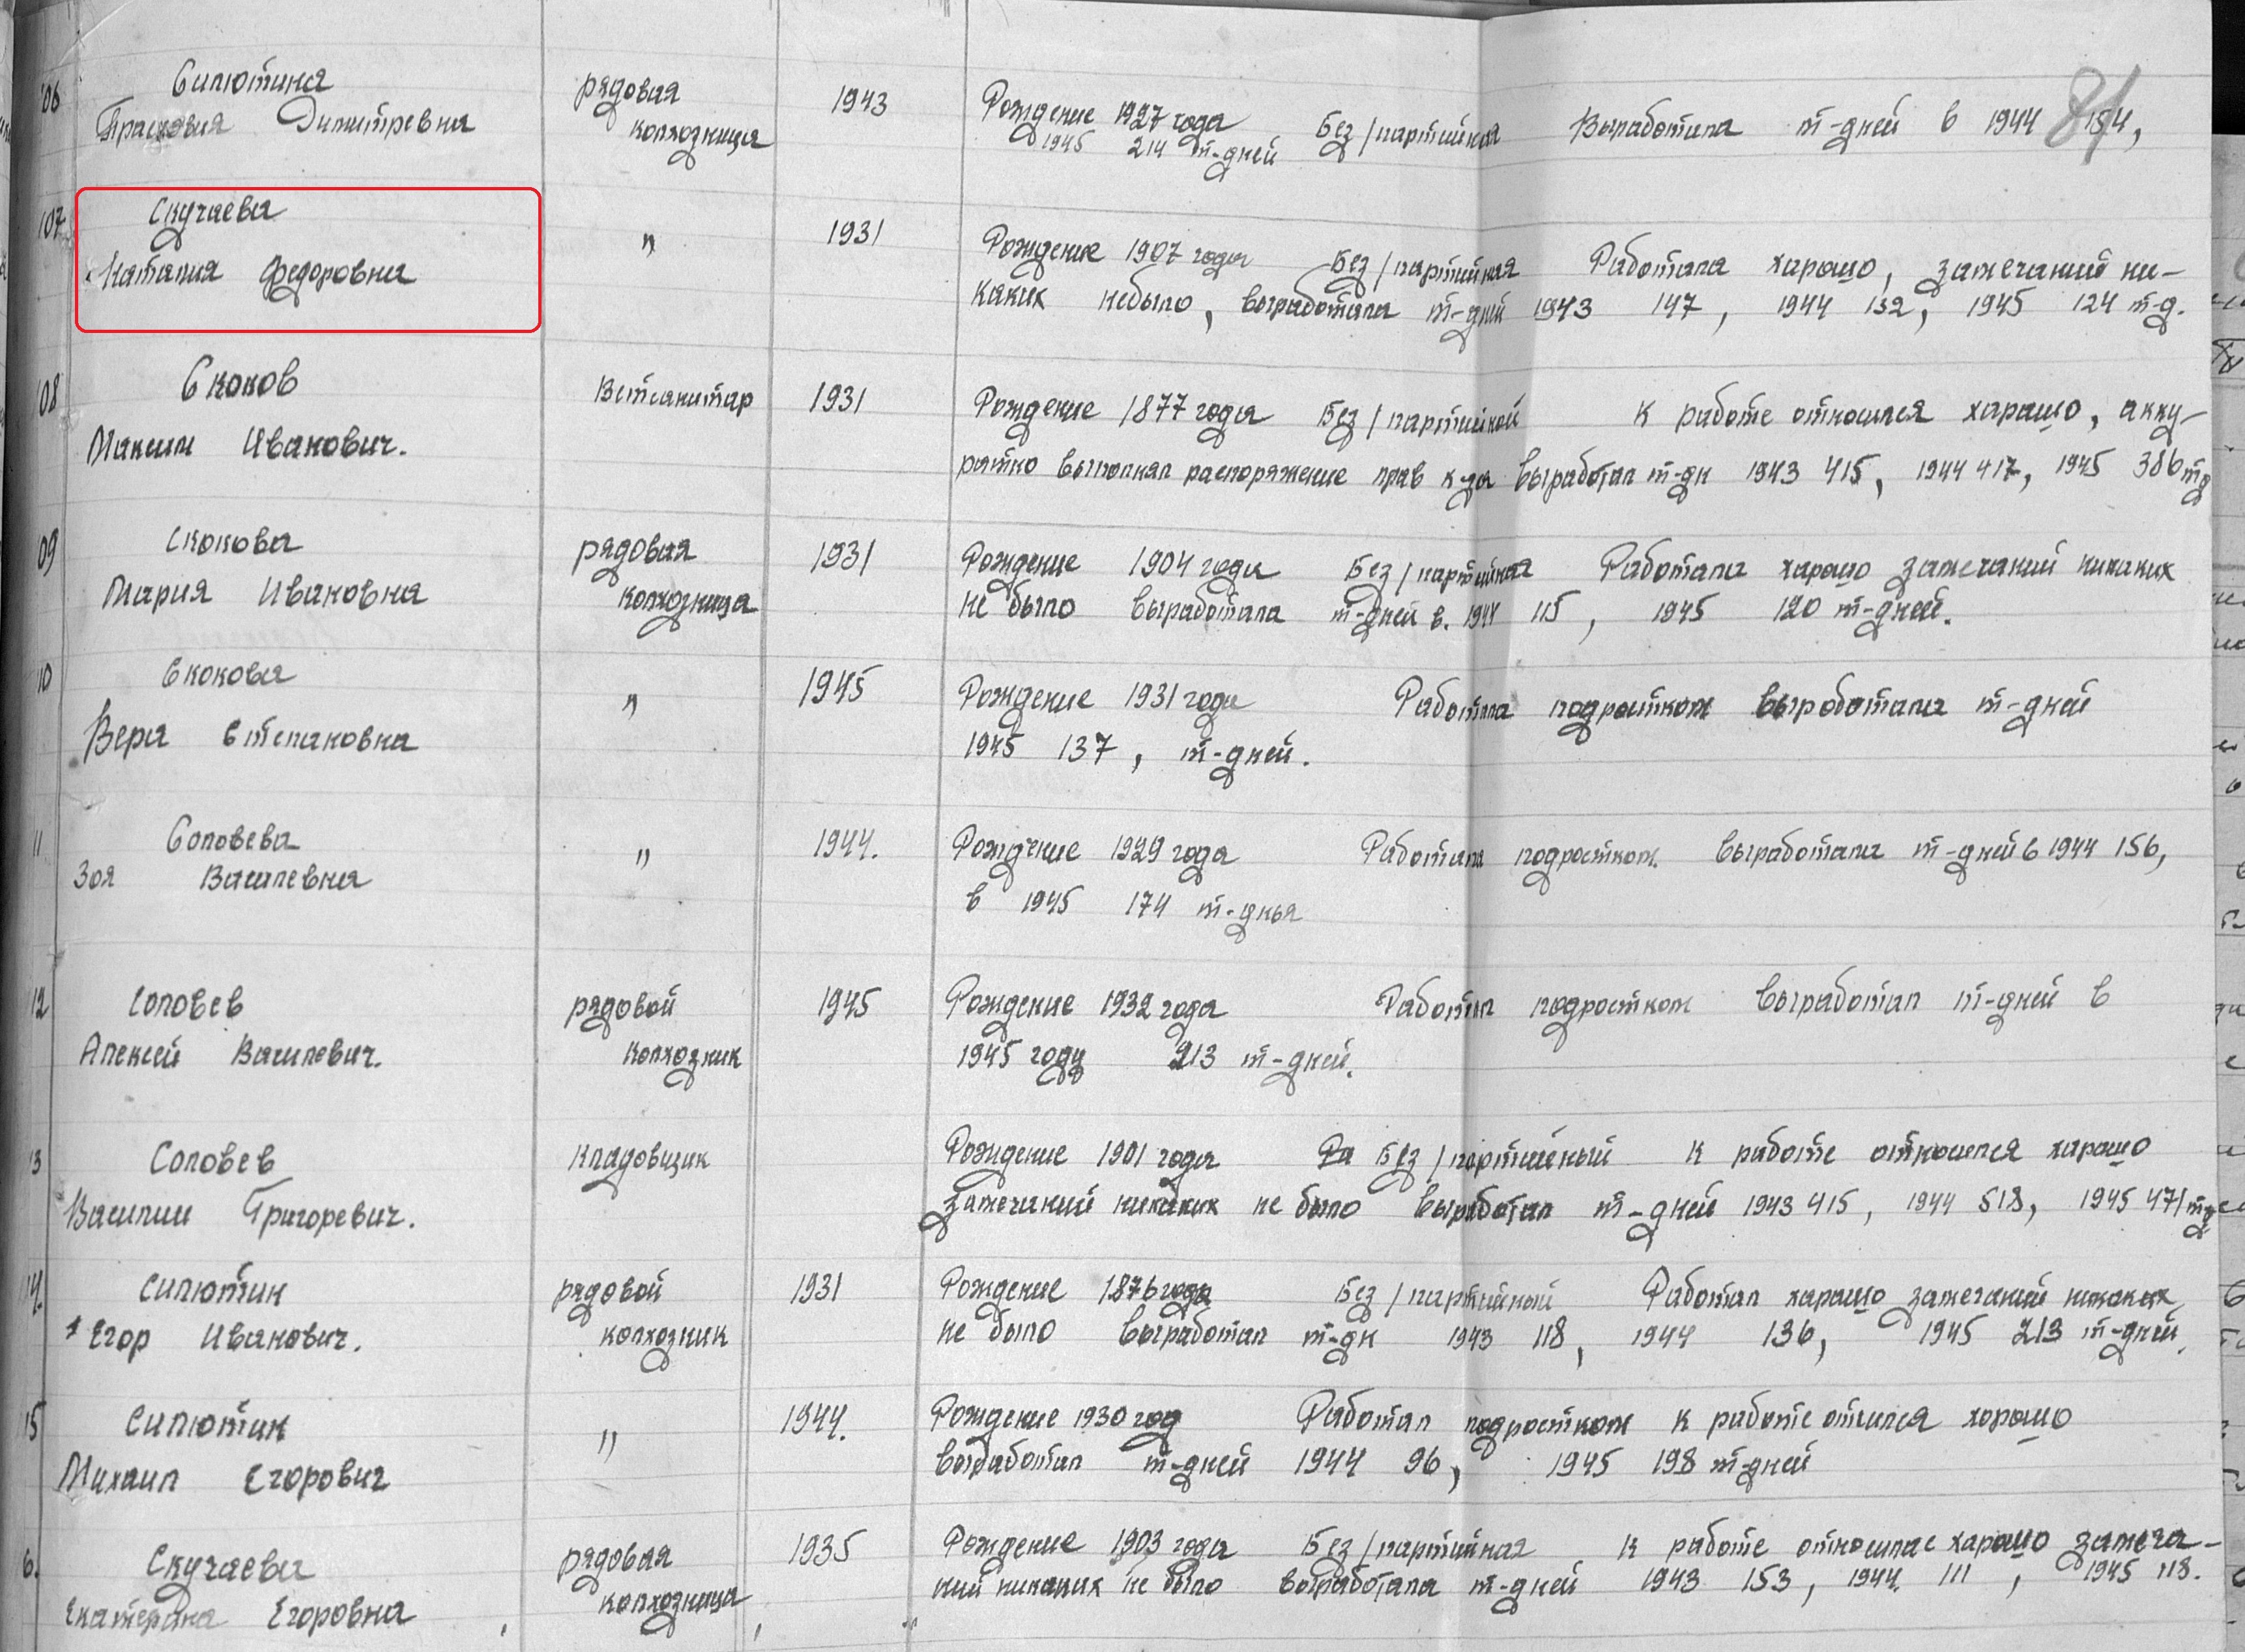 81
106 Силютина
Прасковия Димитревна
рядовая
колхозница
1943
Рождение 1927 года Без/партийная Выработала т-дней в 1944 154,
1945 214 т-дней
107 Скучаева
Наталия Федоровна
"
1931
Рождение 1907 года Без/партийная Работала харашо, замечаний ни-
каких небыло, выработала т-дней 1943 147, 1944 132, 1945 124 т-д.
08 Скоков
Максим Иванович.
Ветсанитар
1931
Рождение 1877 года Без/партийной К работе относился харашо, акку-
ратно выполнял распоряжение прав к-за выработал т-дн 1943 415, 1944 417, 1945 386 тд
09 Скокова
Мария Ивановна
рядовая
колхозница
1931
Рождение 1904 года Без/партийная Работала харашо замечаний никаких
не было выработала т-дней в. 1944 115, 1945 120 т-дней.
10 Скокова
Вера Степановна
"
1945
Рождение 1931 года Работала подростком выроботала т-дней
1945 137, т-дней.
11 Соловева
Зоя Василевна
"
1944.
Рождение 1929 года Работала подростком. Выработала т-дней в 1944 156,
в 1945 174 т-дня
12 Соловев
Алексей Василевич.
рядовой
колхозник
1945
Рождение 1932 года Работал подростком выработал т-дней в
1945 году 213 т-дней.
13 Соловев
Василии Григоревич.
Кладовщик
Рождение 1901 года Ра Без/партийный К работе относился харашо
замечаний никаких не было выработал т-дней 1943 415, 1944 518, 1945 471 тд
14. Силютин
Егор Иванович.
рядовой
колхозник
1931
Рождение 1876 года Без/партийный Работал харашо замечаний никаких
не было выработал т-дн 1943 118, 1944 136, 1945 213 т-дней.
15 Силютин
Михаил Егорович
"
1944.
Рождение 1930 год Работал подростком к работе отнился хорошо
выработал т-дней 1944 96, 1945 198 т-дней
6. Скучаева
Екатерина Егоровна
рядовая
колхозница
1935
Рождение 1903 года Без/партийная К работе относилас харашо замеча-
ний никаких не было выработала т-дней 1943 153, 1944. 111, 1945 118.